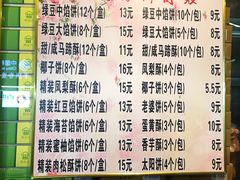 绿豆中馅饼(12个/盒) 13元
绿豆中馅饼(8个/盒) 9元
甜/咸马蹄酥(12个/盒) 11元
椰子饼(8个/盒) 16元
精装凤梨酥(6个/盒) 15元
精装红豆馅饼(6个/盒) 13元
精装海苔馅饼(6个/盒) 14元
精装蜜柚馅饼(6个/盒) 16元
精装肉松酥饼(8个/盒) 15元
绿豆馅饼(4个/包) 5元
绿豆馅饼(10个/包) 9元
甜/咸马蹄酥(4个/包) 5元
凤梨酥(4个/包)
椰子饼(3个/包) 5.5元
老婆饼(5个/包)
蛋黄酥(3个/包) 10元
香芋酥(3个/包) 8元
太阳饼(4个/包) 9元